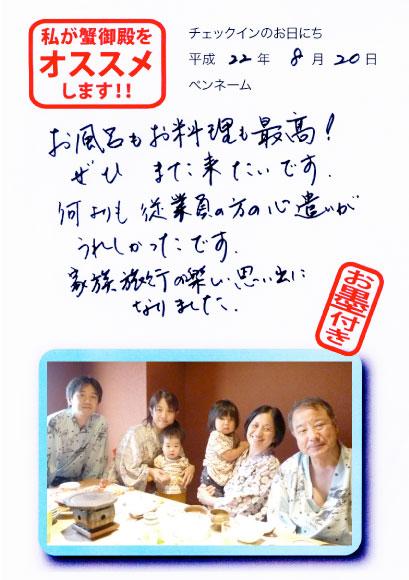 私が蟹御殿を
オススメ
します!!
チェックインのお日にち
平成 22 年 8 月 20 日
ペンネーム
お風呂もお料理も最高!
ぜひ また来たいです.
何よりも 従業員の方の心遣いが
うれしかったです.
家族旅行の楽しい思い出に
なりました.
お墨付き